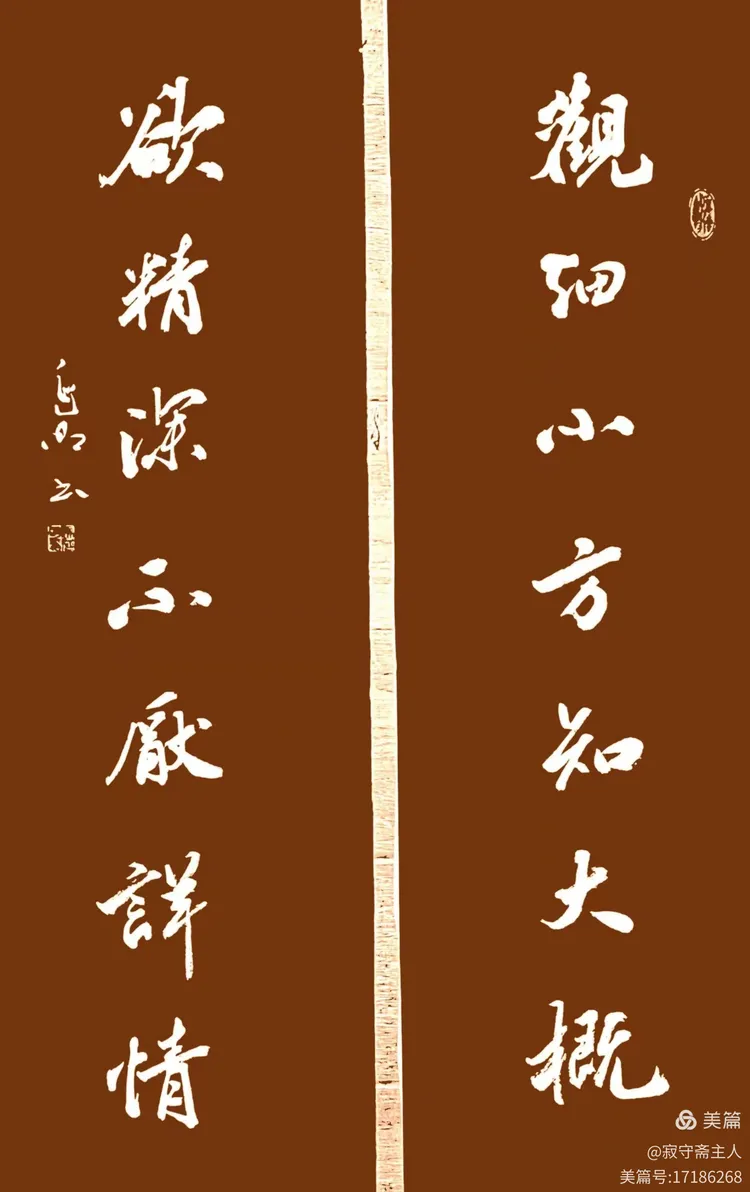 觀細小方知大概
欲精深不厭詳情
書
美篇
@寂守斋主人
美篇号:17186268